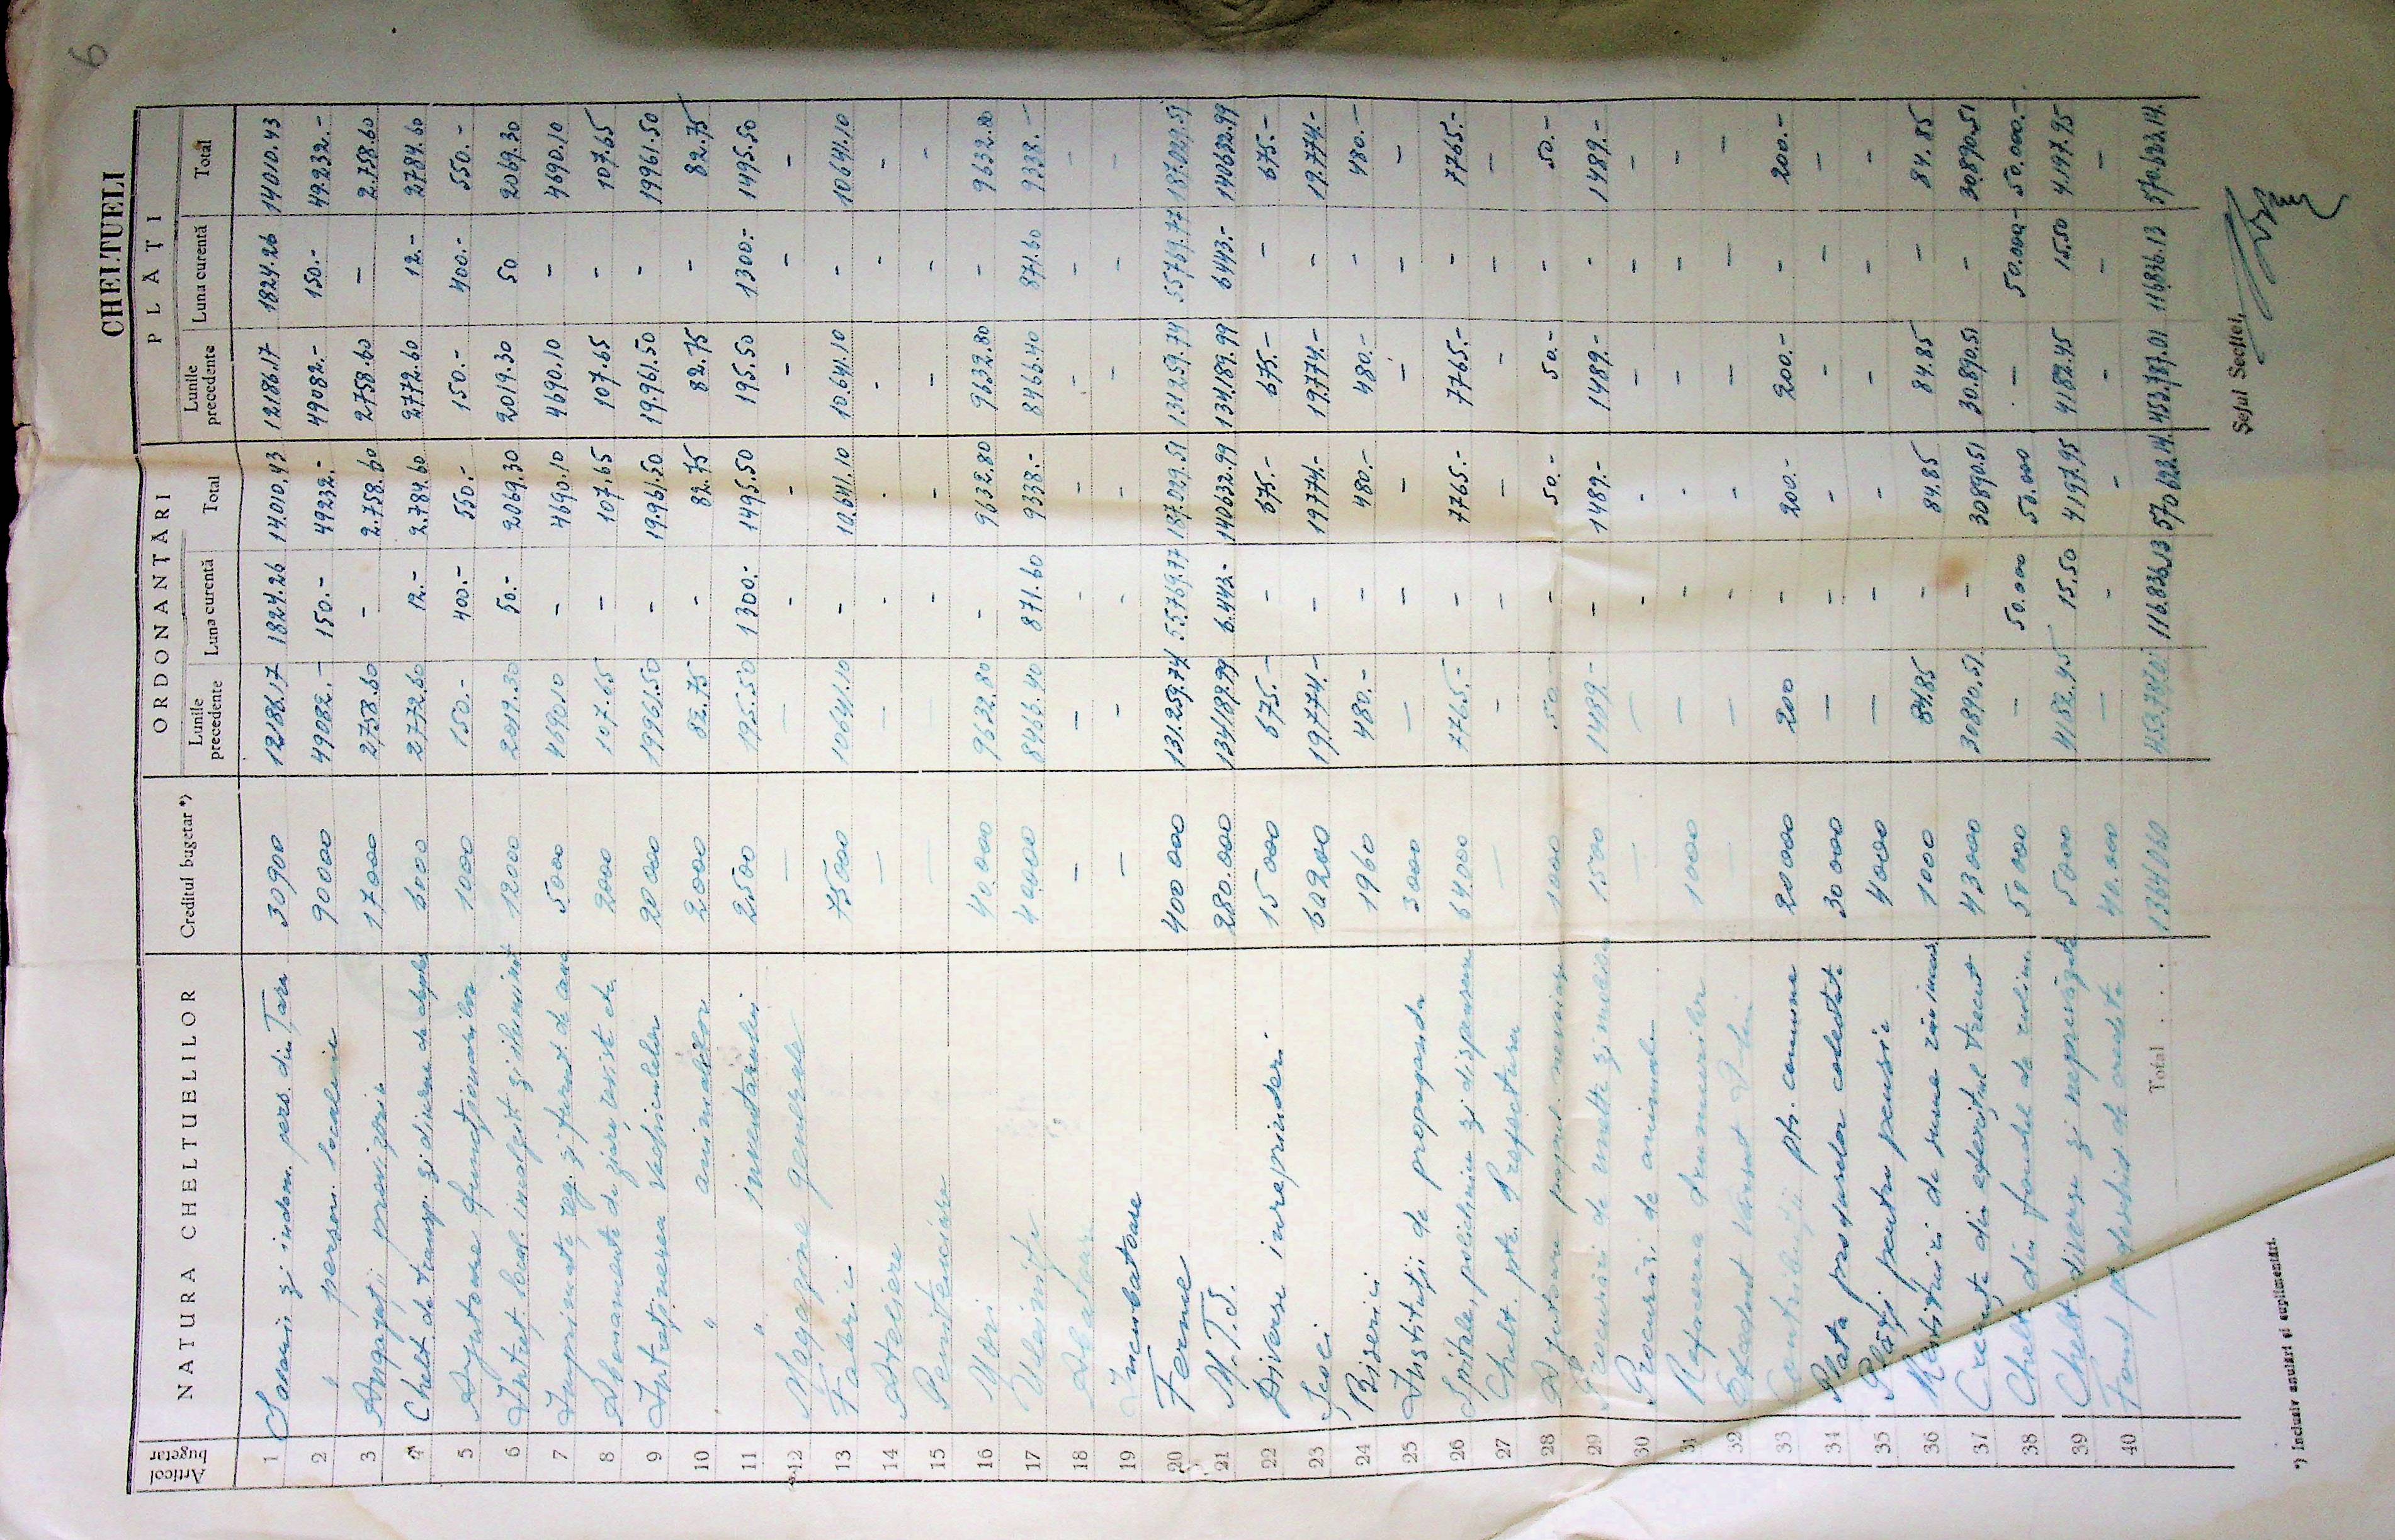 6
CHELTUELI
Articol bugetar | NATURA CHELTUELILOR | Creditul bugetar *) | ORDONANȚĂRI | PLĂȚI
Lunile precedente | Luna curentă | Total | Lunile precedente | Luna curentă | Total
1 | Salarii și indem. pers. din Țară | 30900 | 12186.17 | 1824.26 | 14010.43 | 12186.17 | 1824.26 | 14010.43
2 | " person. localnic | 90000 | 49082.- | 150.- | 49232.- | 49082.- | 150.- | 49.232.-
3 | Angajați provizorii | 17000 | 2758.60 | - | 2.758.60 | 2758.60 | - | 2.758.60
4 | Chelt de transp. și diurne de | 6000 | 2772.60 | 12.- | 2.784.60 | 2772.60 | 12.- | 2784.60
5 | Ajutoare funcționarilor | 1000 | 150.- | 400.- | 550.- | 150.- | 400.- | 550.-
6 | Întreț. local. încălzit și iluminat | 12000 | 2019.30 | 50.- | 2069.30 | 2019.30 | 50 | 2069.30
7 | Imprimate, reg. și furnit. de canc | 5000 | 4690.10 | - | 4690.10 | 4690.10 | - | 4690.10
8 | Abonamente de ziare, reviste etc. | 2000 | 107.65 | - | 107.65 | 107.65 | - | 107.65
9 | Întreținerea vehiculelor | 20000 | 19961.50 | - | 19.961.50 | 19.961.50 | - | 19961.50
10 | " animalelor | 2000 | 82.75 | - | 82.75 | 82.75 | - | 82.75
11 | " inventarului | 2500 | 195.50 | 1300.- | 1495.50 | 195.50 | 1300.- | 1495.50
12 | Magazine generale | - | - | - | - | - | - | -
13 | Fabrici | 75000 | 10641.10 | - | 10.641.10 | 10.641.10 | - | 10641.10
14 | Ateliere | - | - | - | - | - | - | -
15 | Penitenciare | - | - | - | - | - | - | -
16 | Mori | 40.000 | 9632.80 | - | 9632.80 | 9632.80 | - | 9632.80
17 | Uleinițe | 40000 | 8466.40 | 871.60 | 9338.- | 8466.40 | 871.60 | 9338.-
18 | Abatoare | - | - | - | - | - | - | -
19 | Incubatoare | - | - | - | - | - | - | -
20 | Ferme | 400000 | 131.259.74 | 55.769.77 | 187.029.51 | 131259.74 | 55769.77 | 187.029.51
21 | M.T.S. | 280.000 | 134189.99 | 6.443.- | 140632.99 | 134.189.99 | 6443.- | 140632.99
22 | Diverse intreprinderi | 15000 | 675.- | - | 675.- | 675.- | - | 675.-
23 | Școli | 60200 | 19.774.- | - | 19774.- | 19.774.- | - | 19.774.-
24 | Biserici | 1960 | 480.- | - | 480.- | 480.- | - | 480.-
25 | Instituții de propagandă | 3000 | - | - | - | - | - | -
26 | Spitale, policlinici și dispensare | 64000 | 7765.- | - | 7765.- | 7765.- | - | 7765.-
27 | Chelt. ptr. Prefectura | - | - | - | - | - | - | -
28 | Ajutoare | 1000 | 50.- | - | 50.- | 50.- | - | 50.-
29 | Procurări de unelte și mobilier | 1500 | 1489.- | - | 1489.- | 1489.- | - | 1489.-
30 | Procurări de animale | - | - | - | - | - | - | -
31 | Refacerea drumurilor | 1000 | - | - | - | - | - | -
32 | Excedent vărsat | - | - | - | - | - | - | -
33 | Contribuții ptr. comune | 20000 | 200 | - | 200.- | 200.- | - | 200.-
34 | Plata produselor colectate | 30000 | - | - | - | - | - | -
35 | Plăți pentru pensii | 4000 | - | - | - | - | - | -
36 | Restituiri de sume | 1000 | 84.85 | - | 84.85 | 84.85 | - | 84.85
37 | Creanțe din exercițiul trecut | 43000 | 30890.51 | - | 30890.51 | 30.890.51 | - | 30890.51
38 | Chelt. din fondul de rulm. | 50000 | - | 50.000 | 50.000 | - | 50.000.- | 50.000.-
39 | Chelt. diverse și neprevăzute | 5000 | 4182.45 | 15.50 | 4197.95 | 4182.45 | 15.50 | 4.197.95
40 | Fond pt deschid. de credite | 40.000 | - | - | - | - | - | -
Total . . . . | 1364060 | 453.787.01 | 116.836.13 | 570623.14 | 453.787.01 | 116.836.13 | 570.623.14
Șeful Secției,
*) Inclusiv anulări și suplimentări.